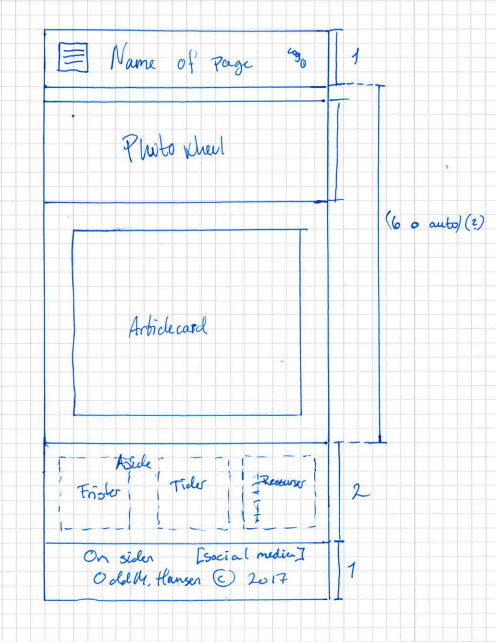 Name of page logo
1
Photo wheel
(6 o auto) (?)
Articlecard
Aside
Frister
Tider
Ressurser
2
Om siden [social media]
Odd M. Hansen © 2017
1